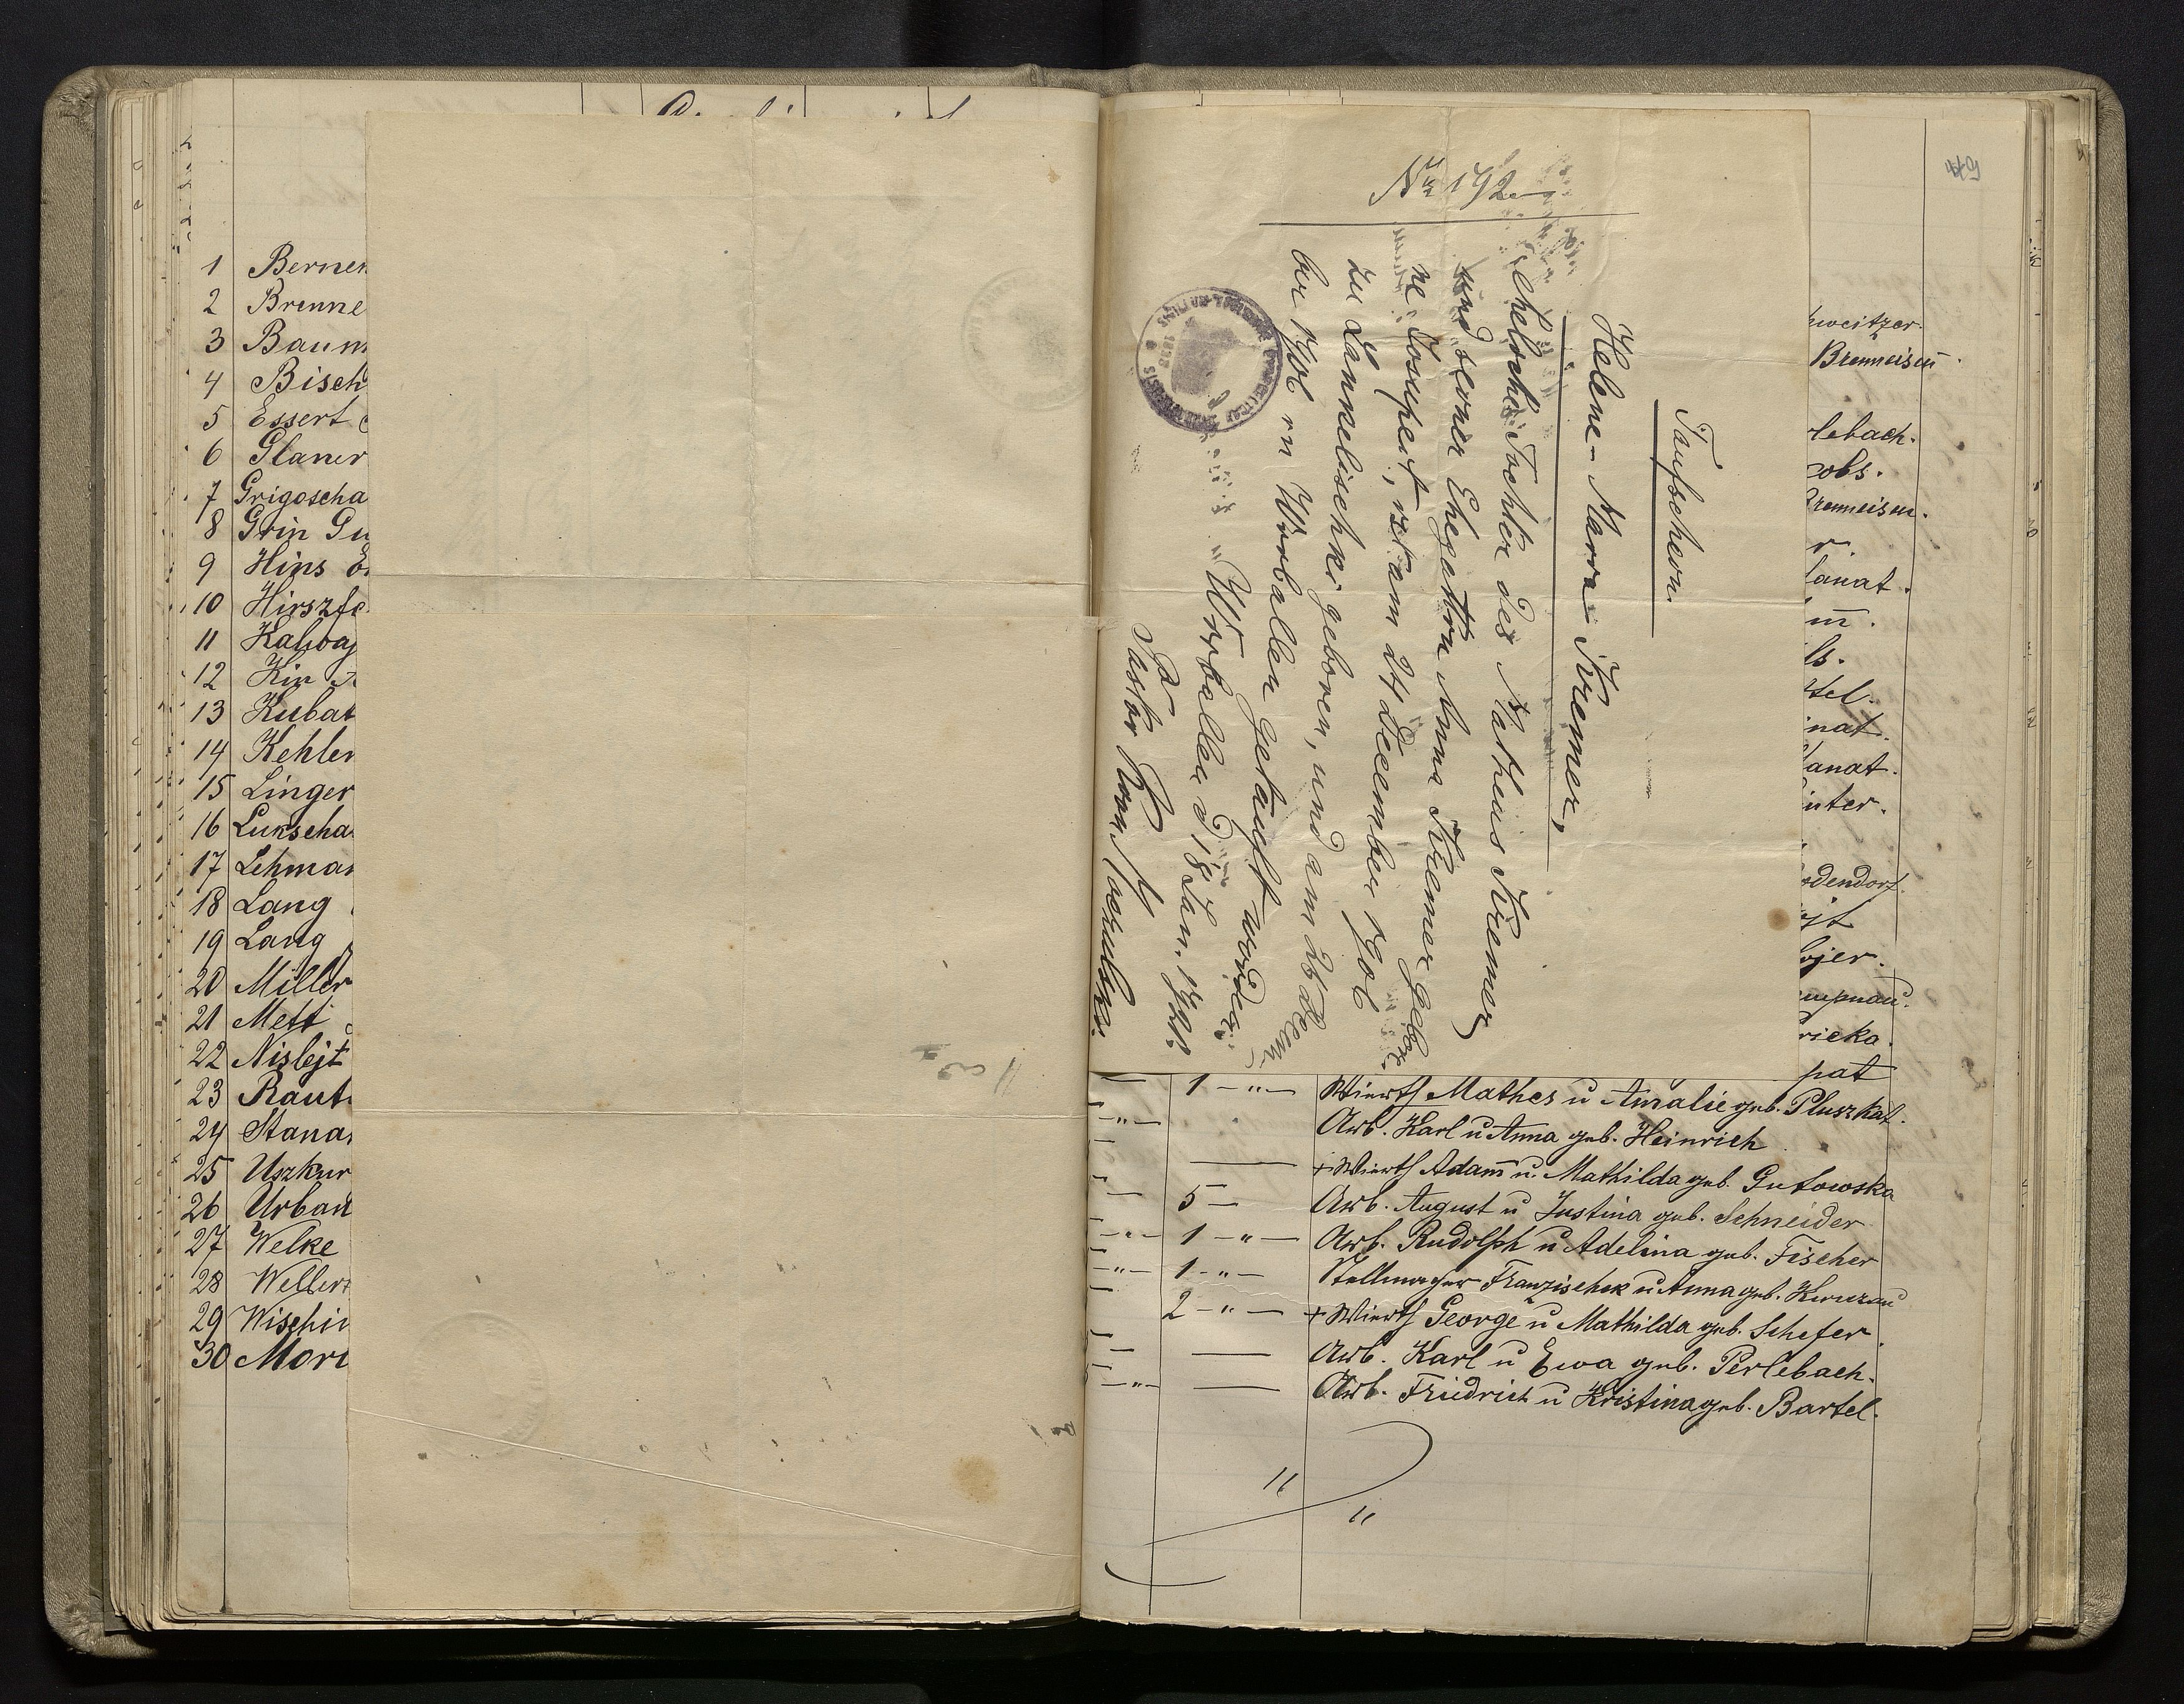 1 Berner
2 Brenne
3 Baum
4 Bisch
5 Essert
6 Glaner
7 Grigoscha
8 Grin Gu
9 Hins
10 Hirszfe
11
12 Kin
13 Kubat
14 Kehler
15 Linger
16 Lukscha
17 Lehman
18 Lang
19 Lang
20 Miller
21 Mett
22 Nislejt
23 Raut
24 Stana
25 Uszkur
26 Urban
27 Welke
28 Weller
29 Wischi
30 Mori
№ 192
Taufschein.
Helene - Maria - Kremer,
eheliche Tochter des Matheus Kremer
und seiner Ehegattin Anna Kremer gebor.
ne Josupeit, ist am 24 December 190
zu Lankelischki geboren, und am 26 Decem
ber 190 in Wirballen getauft worden.
Wirballen d 18 Jan.
Pastor
hweitzer.
Brenneisen.
rlebach.
cobs.
Brenneisen.
r.
lanat.
m̄.
ls.
tel.
inat.
lanat.
inter.
odendorf.
jt
ojer.
ricka.
pat
1 -"- Wirth Mathes u Amalie geb. Pluszkat.
-"- Arb. Karl u Anna geb. Heinrich
— + Wirth Adam̄ u. Mathilda geb. Gutowska
5 — Arb. August u Justina geb. Schneider
-"- 1 -"- Arb. Rudolph u Adelina geb. Fischer
-"- 1 -"- Stellmacher Franzischek u Anna geb.
2 -"- + Wirth George u Mathilda geb. Schefer.
— Arb. Karl u Ewa geb. Perlebach.
-"- — Arb. Friedrich u Kristina geb. Bartel.
" "